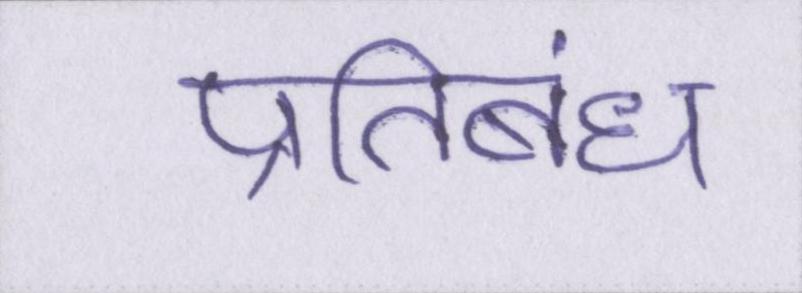 प्रतिबंध